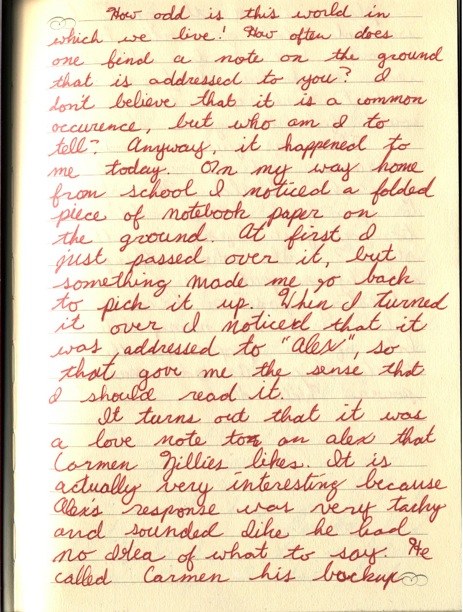 How odd is this world in
which we live! How often does
one find a note on the ground
that is addressed to you? I
don't believe that it is a common
occurence, but who am I to
tell? Anyway, it happened to
me today. On my way home
from school I noticed a folded
piece of notebook paper on
the ground. At first I
just passed over it, but
something made me go back
to pick it up. When I turned
it over I noticed that it
was addressed to "Alex", so
that gave me the sense that
I should read it.
It turns out that it was
a love note to an alex that
Carmen Gillies likes. It is
actually very interesting because
Alex's response was very tachy
and sounded like he had
no idea of what to say. He
called Carmen his backup